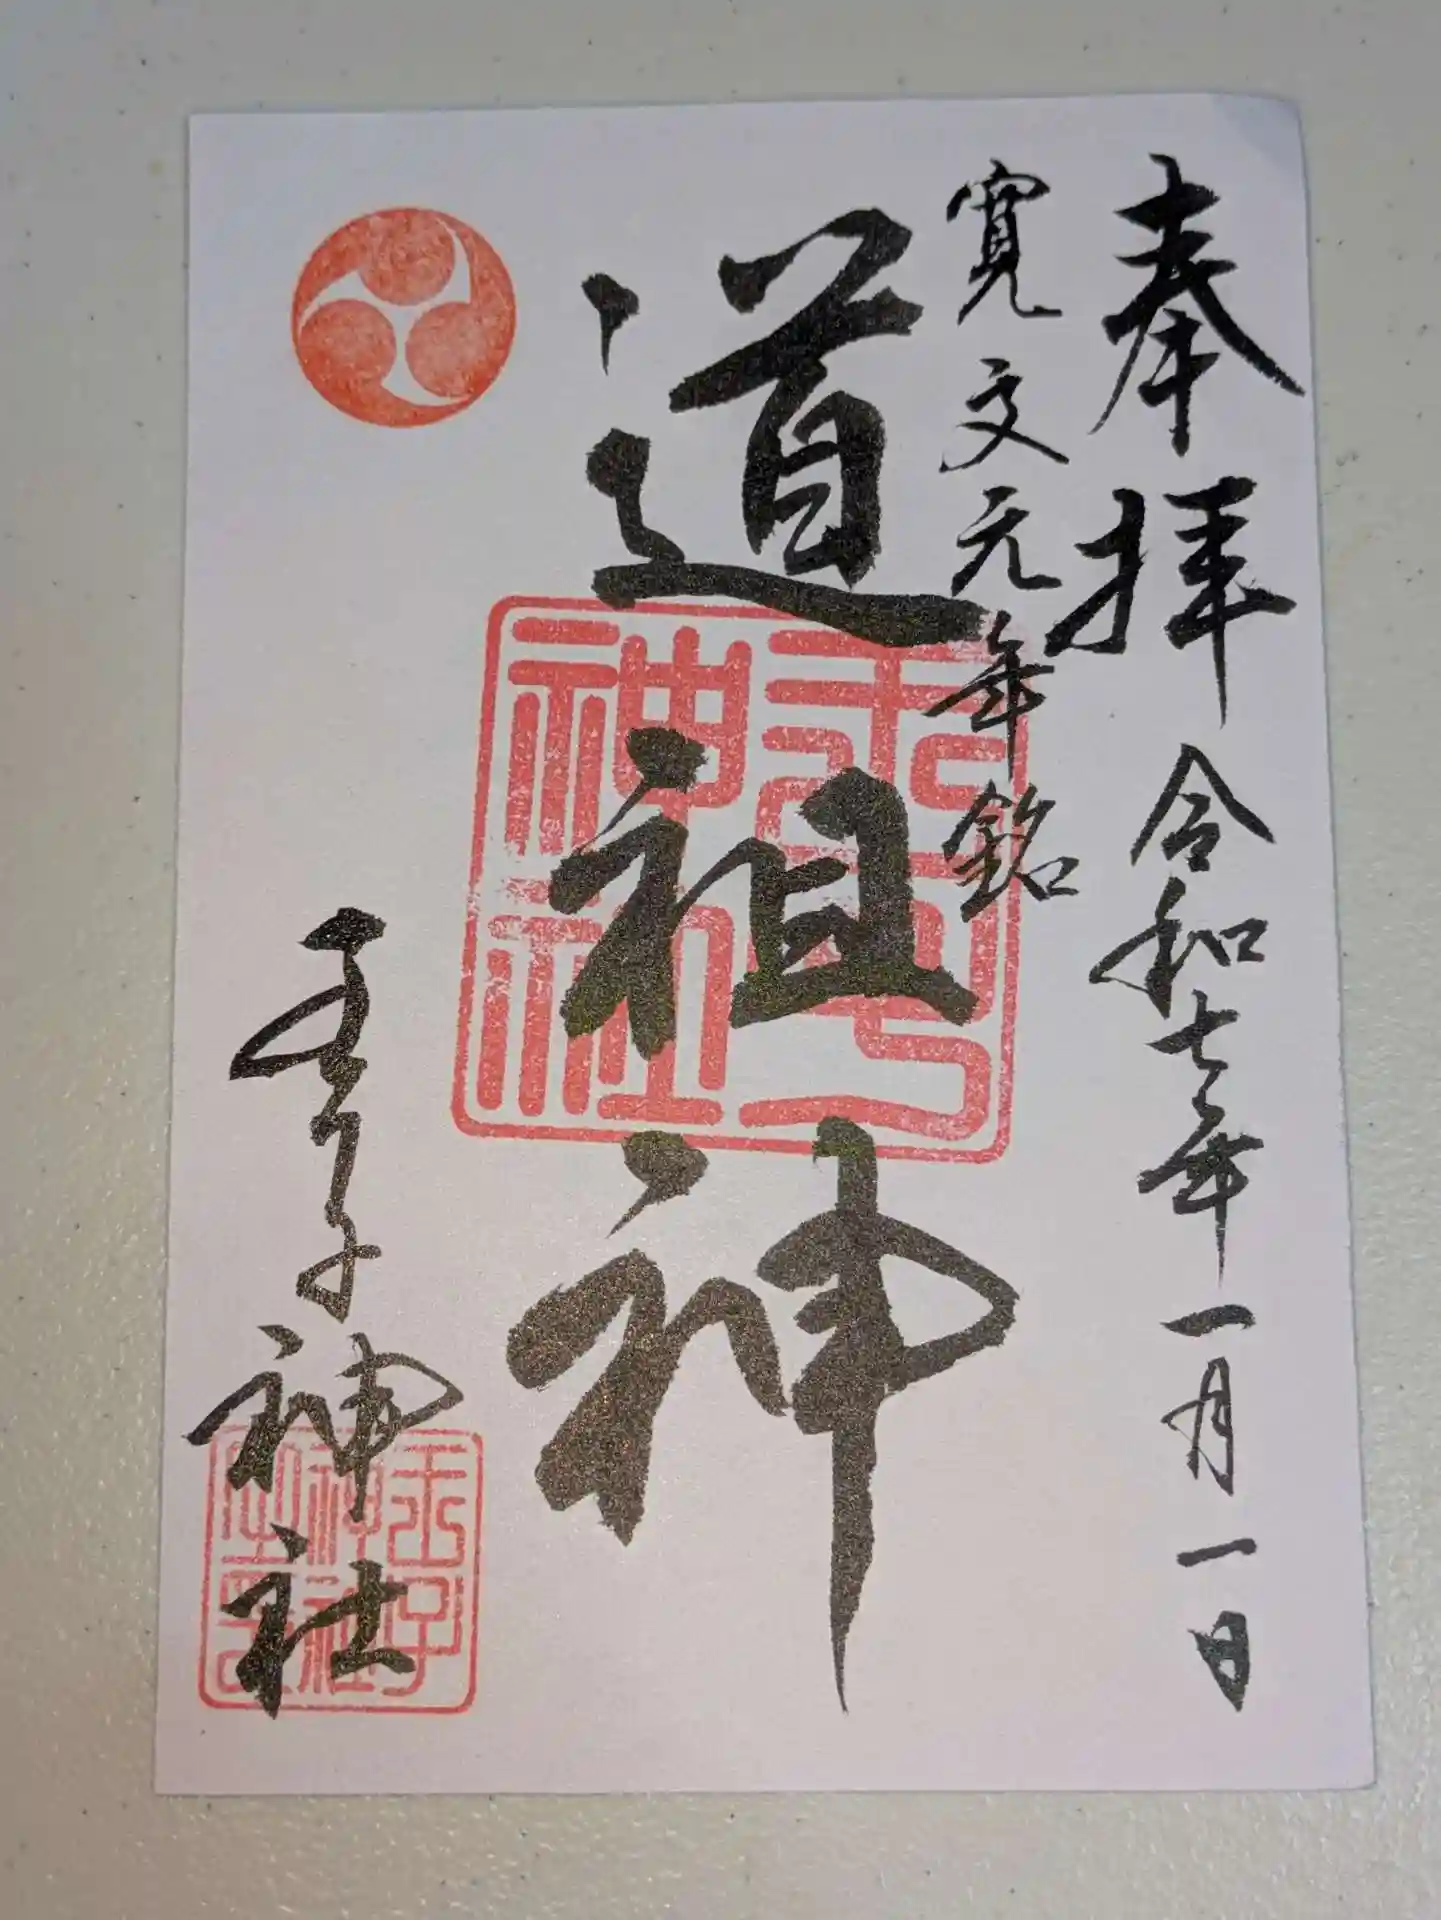 奉拝 令和七年一月一日
寛文元年銘
道祖神
神社
神社
神社